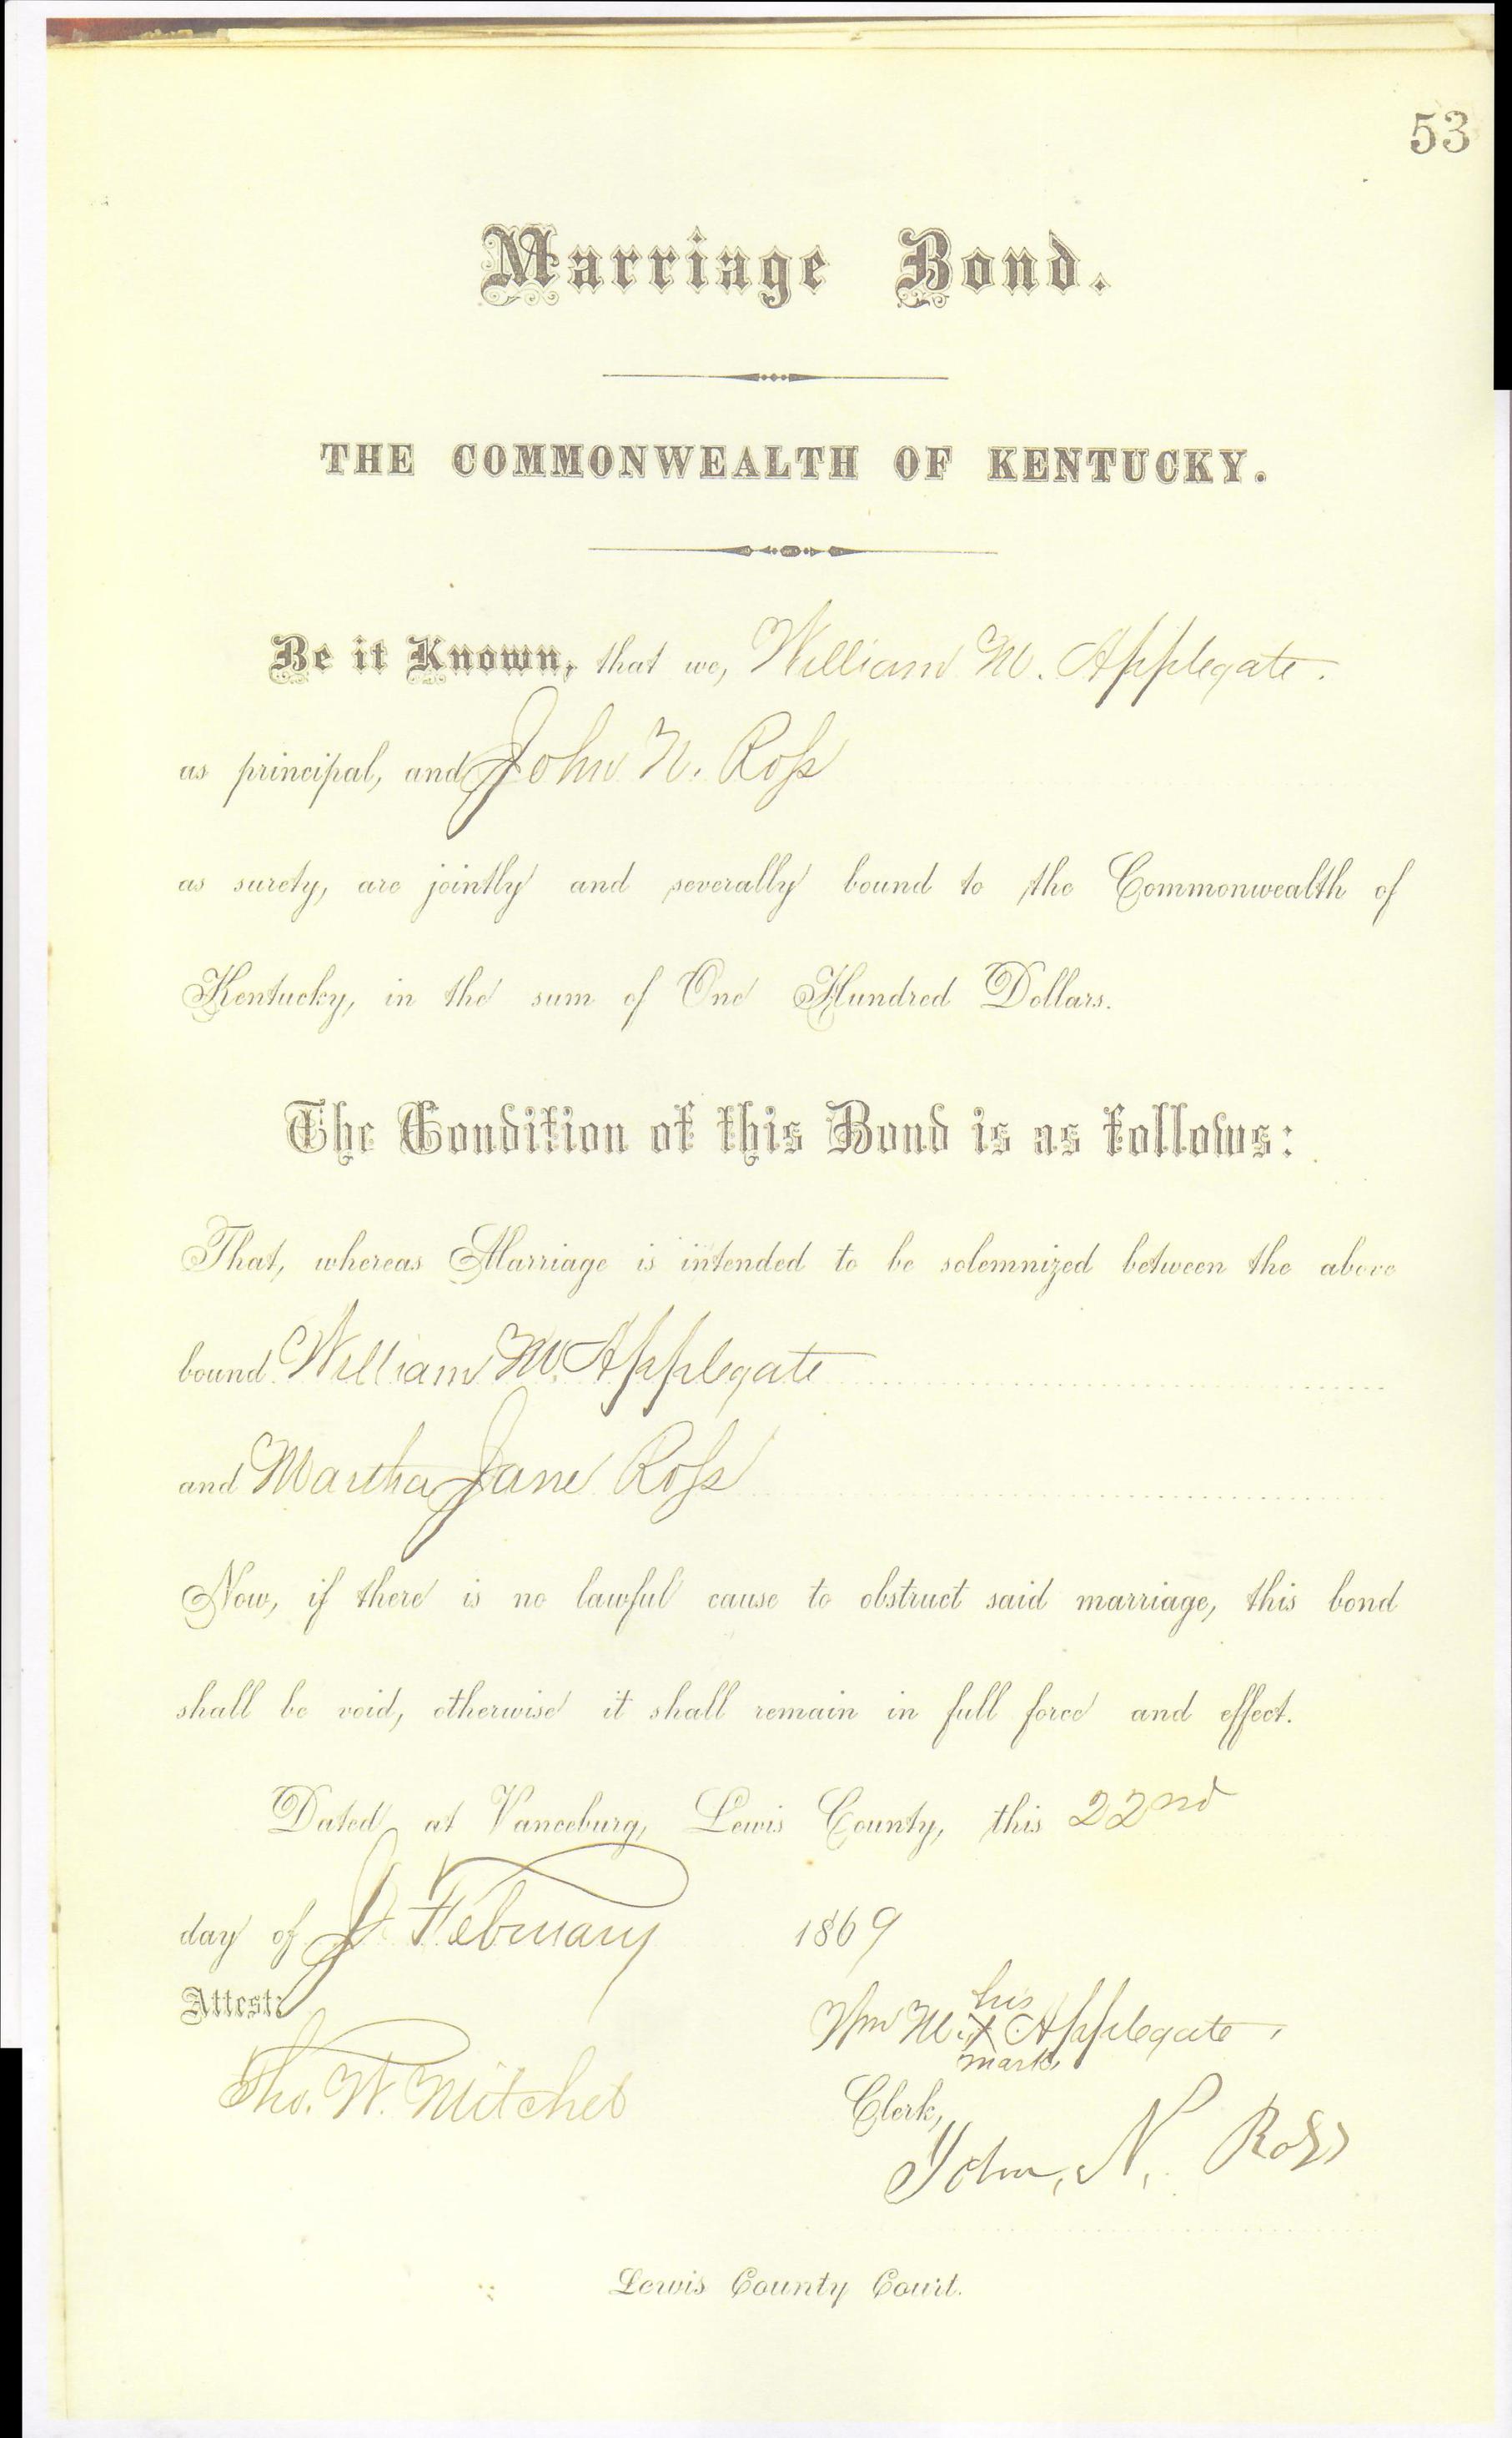 53
Marriage Bond.
THE COMMONWEALTH OF KENTUCKY.
Be it Known, that we, William M. Applegate.
as principal, and John N. Ross
as surety, are jointly and severally bound to the Commonwealth of
Kentucky, in the sum of One Hundred Dollars.
The Condition of this Bond is as follows:
That, whereas Marriage is intended to be solemnized between the above
bound William M. Applegate
and Martha Jane Ross
Now, if there is no lawful cause to obstruct said marriage, this bond
shall be void, otherwise it shall remain in full force and effect.
Dated at Vanceburg, Lewis County, this 22nd
day of February 1869
Attest:
his
Wm M. X Applegate,
mark
Tho. W. Mitchel
Clerk,
John, N. Ross
Lewis County Court.